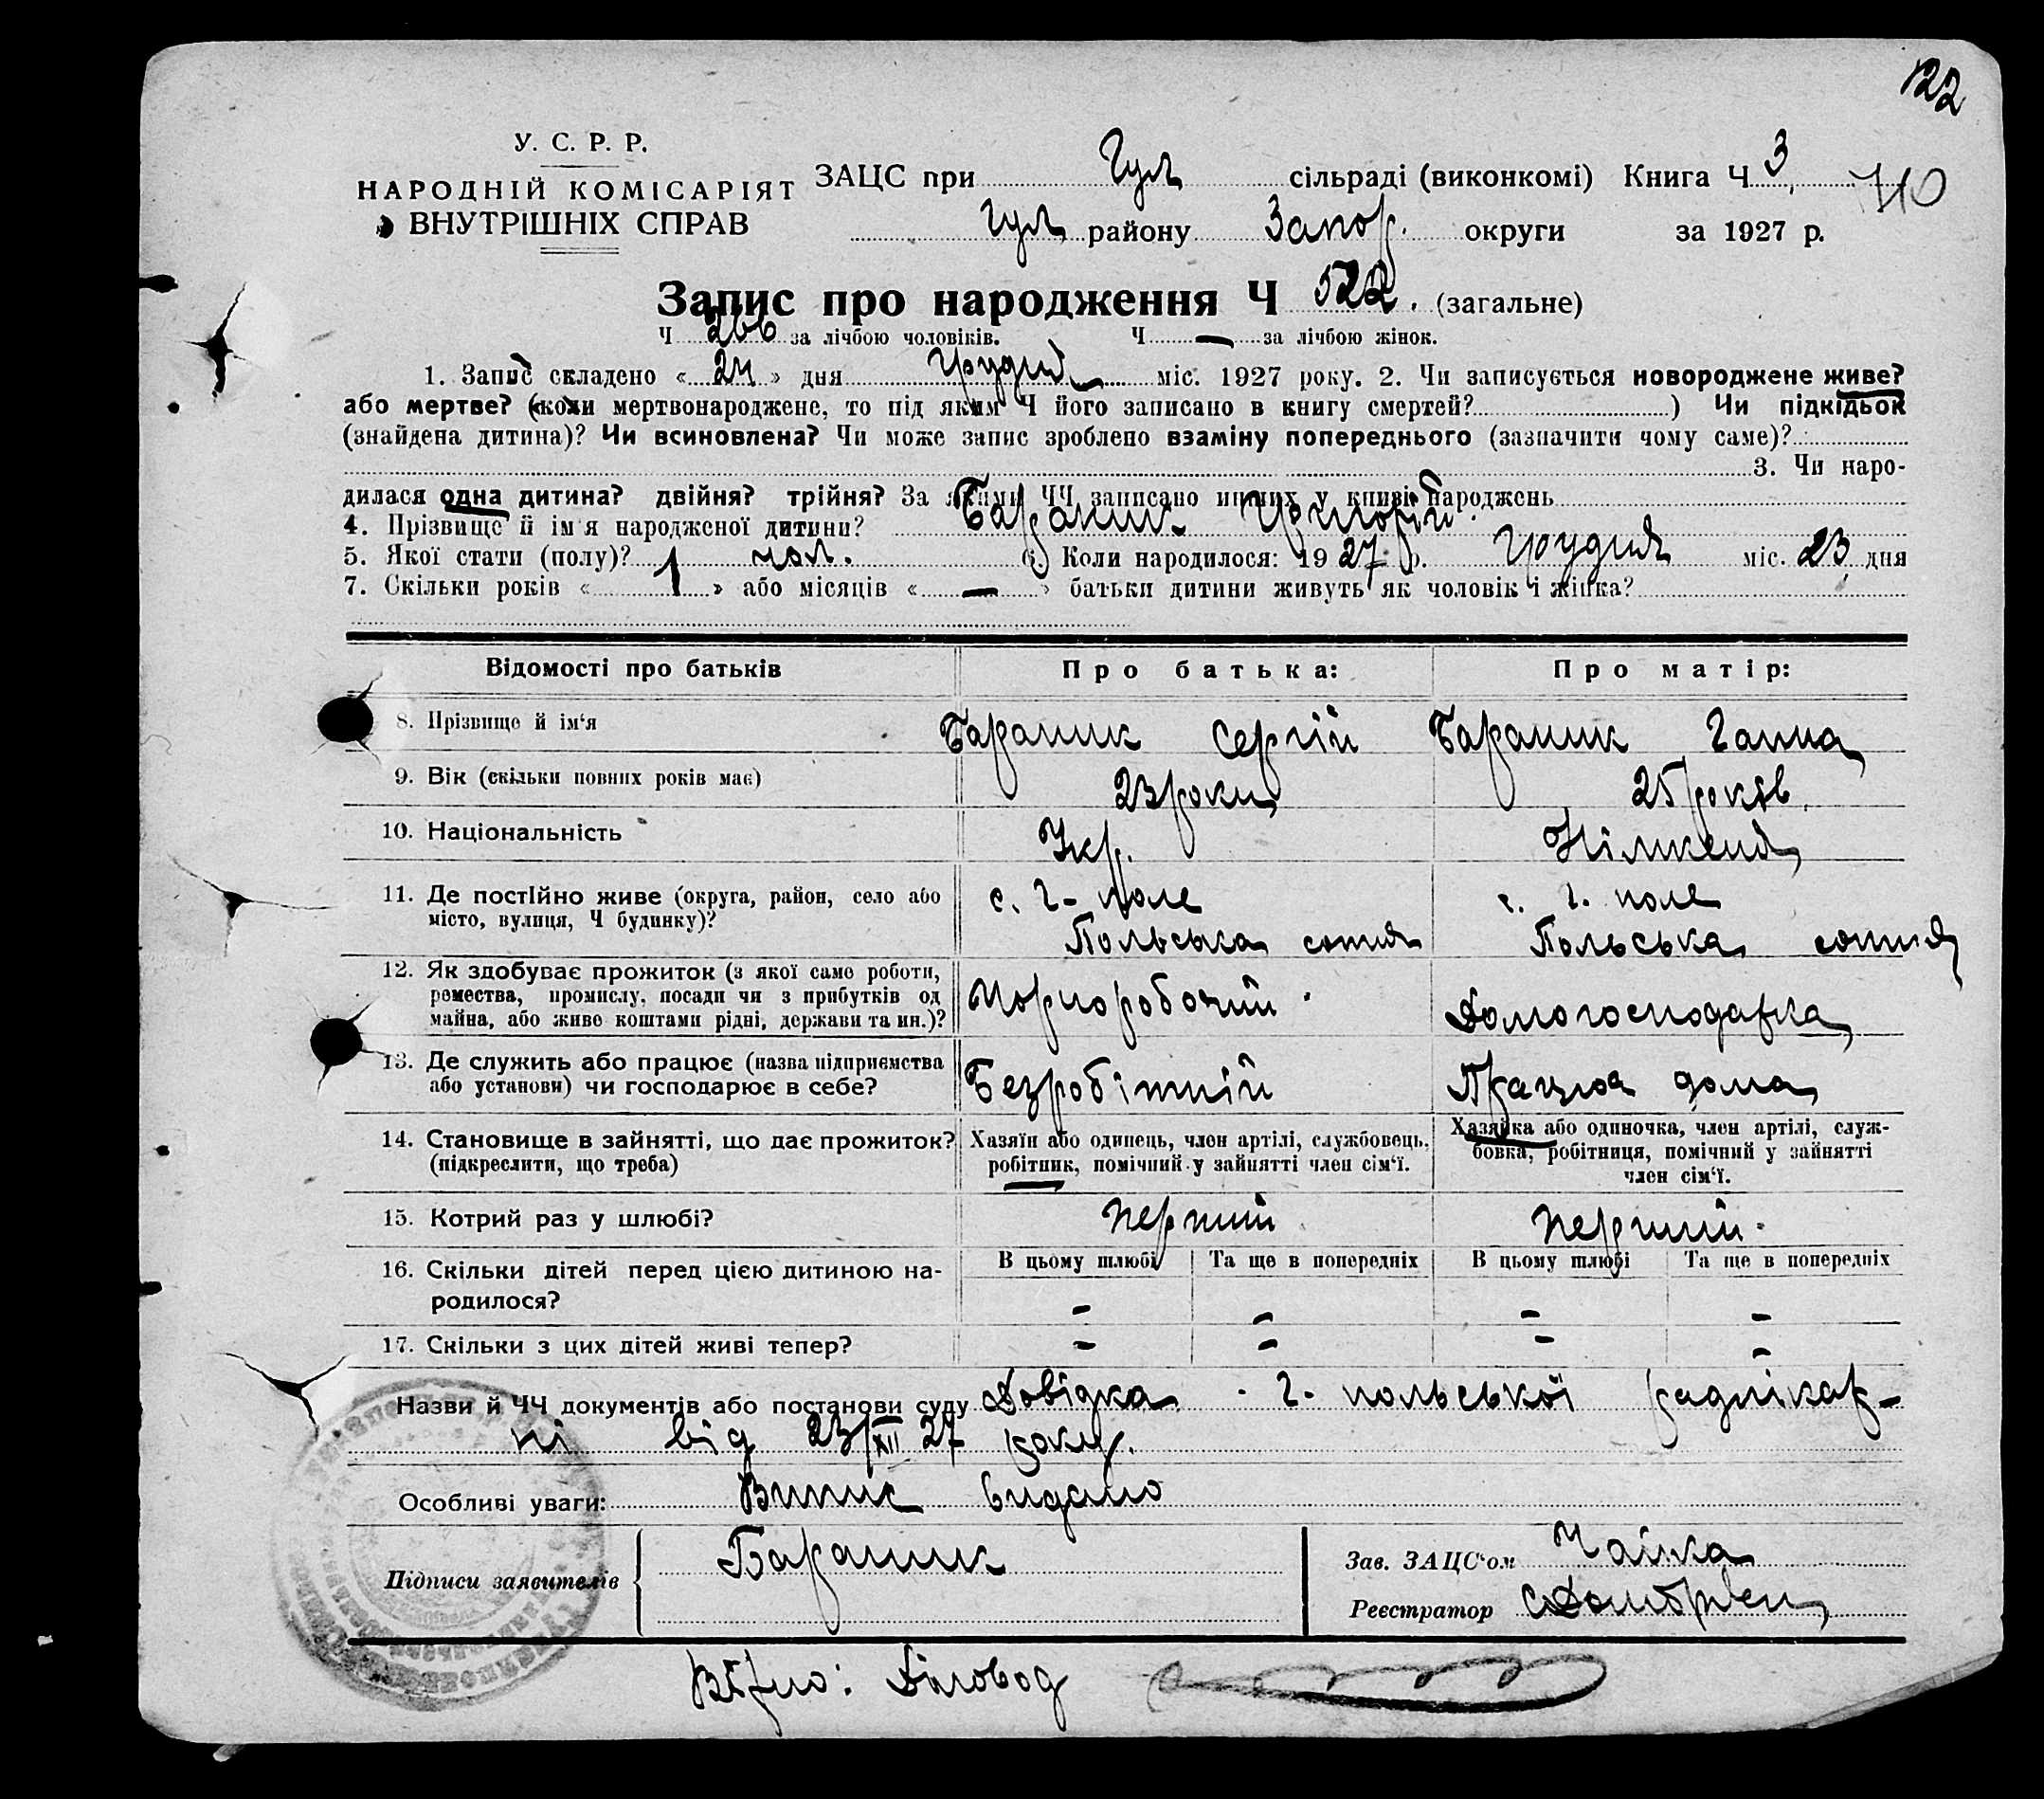 122
У. С. Р. Р.
НАРОДНІЙ КОМІСАРІЯТ
ВНУТРІШНІХ СПРАВ
ЗАЦС при Гул сільраді (виконкомі) Книга Ч 3
Гул району Запор. округи за 1927 р.
Запис про народження Ч 522. (загальне)
Ч 266 за лічбою чоловіків. Ч — за лічбою жінок.
1. Запис складено « 24 » дня Грудня міс. 1927 року. 2. Чи записується новороджене живе?
або мертве? (коли мертвонароджене, то під яким Ч його записано в книгу смертей? ) Чи підкідьок
(знайдена дитина)? Чи всиновлена? Чи може запис зроблено взаміну попереднього (зазначити чому саме)?
3. Чи наро-
дилася одна дитина? двійня? трійня? За якими ЧЧ записано инших у книзі народжень
4. Прізвище й ім'я народженої дитини? Бараник Григорій
5. Якої стати (полу)? 1 чол. 6. Коли народилося: 1927 р. Грудня міс. 23 дня
7. Скільки років « 1 » або місяців « — » батьки дитини живуть як чоловік і жінка?
Відомості про батьків Про батька: Про матір:
8. Прізвище й ім'я Бараник Сергій Бараник Ганна
9. Вік (скільки повних років має) 23 роки 25 років
10. Національність Укр. Німкеня
11. Де постійно живе (округа, район, село або с. Г- поле с. Г. поле
місто, вулиця, Ч будинку)? Польська сотня Польська сотня
12. Як здобуває прожиток (з якої саме роботи,
ремества, промислу, посади чи з прибутків од Чорноробочий Домогосподарка
майна, або живе коштами рідні, держави та ин.)?
13. Де служить або працює (назва підприємства Безробітній Працює дома
або установи) чи господарює в себе?
14. Становище в зайнятті, що дає прожиток? Хазяїн або одинець, член артілі, службовець, Хазяйка або одиночка, член артілі, служ-
(підкреслити, що треба) робітник, помічний у зайнятті член сім'ї. бовка, робітниця, помічний у зайнятті
член сім'ї.
15. Котрий раз у шлюбі? перший перший.
16. Скільки дітей перед цією дитиною на- В цьому шлюбі Та ще в попередніх В цьому шлюбі Та ще в попередніх
родилося? – – – –
17. Скільки з цих дітей живі тепер? – – – –
Назви й ЧЧ документів або постанови суду Довідка Г. польської радлікар-
ні від 23/XII 27 року.
Особливі уваги: Випис видано
Підписи заявителів Бараник Зав. ЗАЦС'ом Чайка
Реєстратор
Вірно: Діловод